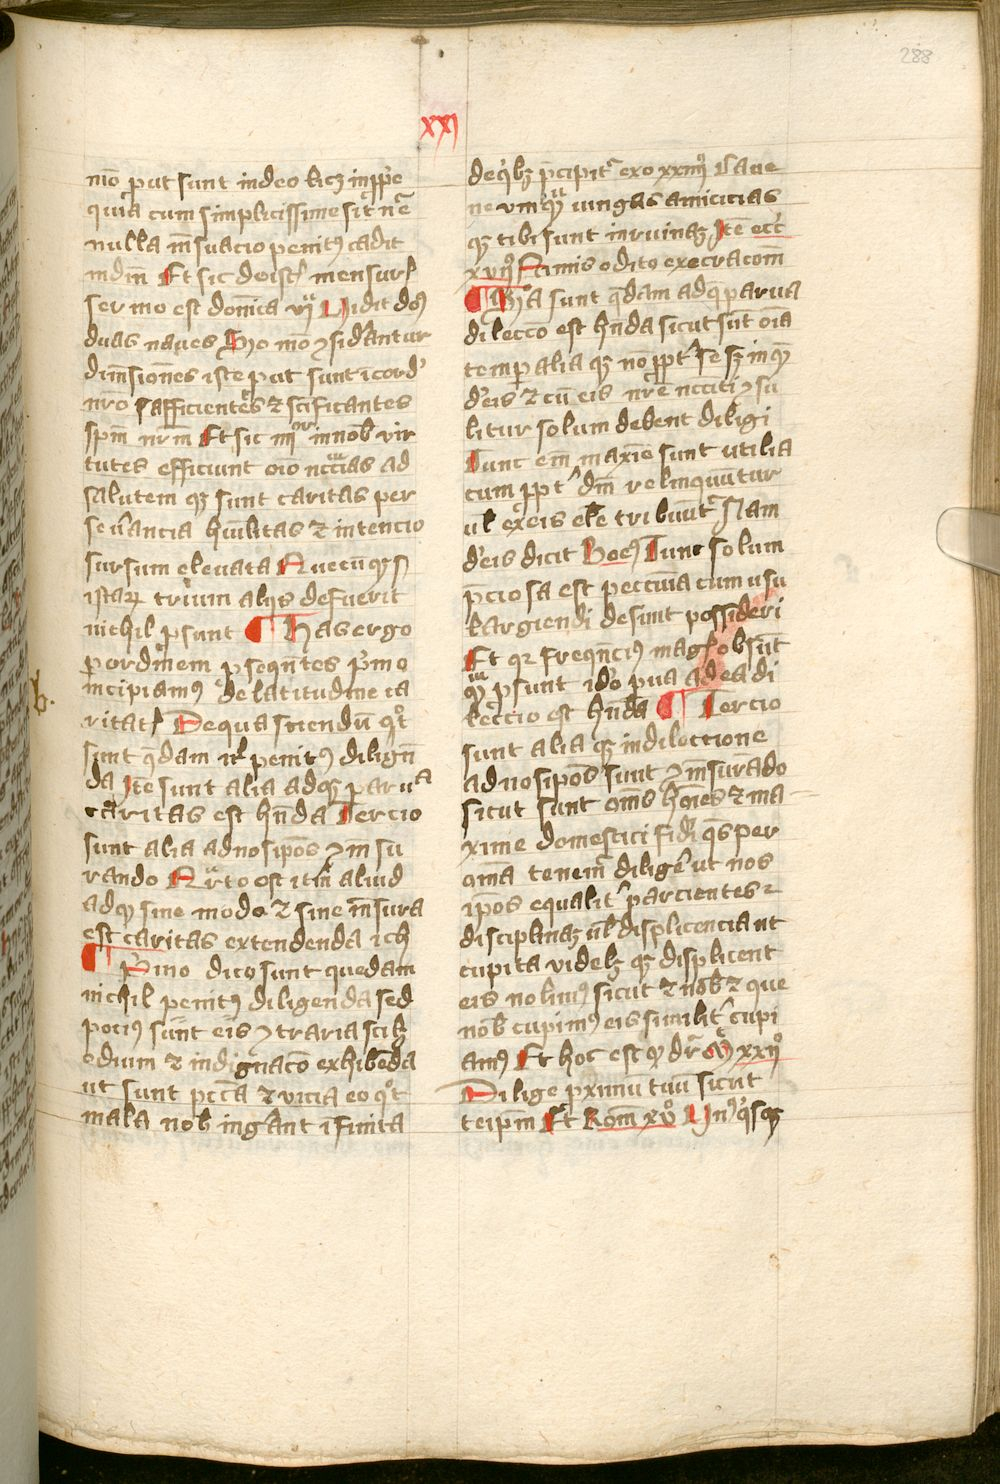 288
xxj
mo᷒ put sunt in deo licz inpp̄e
quia cum simplicissime sit nr̄e
nulla mn̄suracio penitꝰ cadit
in dm̄ Et sic de istꝭ mensurꝭ
sermo est domīca vj Vidit doꝰ
duas naues Sc̄do mō ꝯsidr̄antur
dimn̄siones iste put sunt ī cord̓
nr̄o saffficientes ⁊ sc̄ificantes
spm̄ nrm̄ Et sic iiijor in nob̄ vir
tutes efficiunt oīo ncc̄ias ad
salutem qꝫ sunt caritas per
seu̓ancia hūilitas ⁊ intencio
sursum eleuata Quecūqꝫ
istaꝝ trium alqͥs defuerit
nichil ꝓsunt ¶ Has ergo
ꝑ ordinem ꝓseqn̄tes pͥmo
incipiamꝰ de latitudine ca
ritatꝭ De qua sciendū qͦt
sunt q̄dam ꝙ penitꝰ diligen̄
da Itē sunt alia ad qꝫ parua
caritas est hn̄da Tercio
sunt alia ad nosip̄os ꝯmn̄su
rando Qrͣto est itm̄ aliud
ad qꝫ sine modo ⁊ sine mn̄sura
est caritas extendenda ⁊cͣ
¶ Pͥmo dico sunt quedam
nichil penitꝰ diligenda sed
pociꝰ sunt eis ꝯtraria scilꝫ
odium ⁊ indignacō exhibēda
ut sunt pcc̄a ⁊ vicia eo qͦt
mala nob̄ ingr̄ant īfinita
de qͥbꝫ p̄cipitͬ exo xxiiijͦ Caue
ne vmqͣꝫ iungas amicicias
qꝫ tibi sunt in ruinaꝫ Itē ecc̄
xvijͦ Nimis odito execracom̄
¶ Scͦa sunt q̄dam ad q̄ parua
dileccō est hn̄da sicut sūt oīa
temꝑalia qꝫ nō ꝓptͬ se sꝫ inqͣꝫ
d̓ eis ⁊ cū eis nr̄e ncc̄iti ꝯsu
litur solum debent diligi
Tunc em̄ maxīe sunt utilia
cum ꝓptͬ dm̄ relinquūtur
ul̄ ex eis elē tribuūtͬ Nam
d̓ eis dicit Boecꝰ Tunc solum
p̄ciosa est peccūia cum usu
largiendi desunt possideri
Et qꝛ freqn̄ciꝰ magꝭ obsūt
qͣꝫ ꝓsunt ido pͣua ad ea di
leccio est hn̄da ¶ Tercio
sunt alia qꝫ in dileccione
ad nosip̄os sunt ꝯmn̄surādo
sicut sunt oms̄ hoīes ⁊ ma
xime domestici fidei qͦs per
om̄a tenemͬ diligē ut nos
ip̄os equalitͬ parcientes ⁊
disciplinaꝫ ul̄ displicencia ut
cupita videlꝫ qꝫ displicent
eis nolimꝰ sicut ⁊ nob̄ ⁊ que
nob̄ cupimꝰ eis similitͬ cupi
amꝰ Et hoc est qꝫ dr̄ Mͭ xxijͦ
Dilige pximū tuū sicut
teipm̄ Et Rom xvͦ Vnꝰqͥsqꝫ
b.